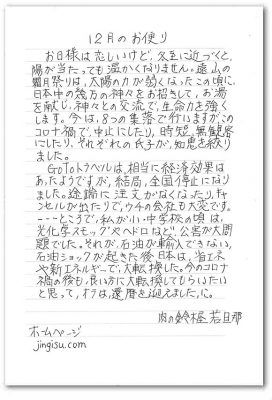 12月のお便り
お日様は恋しいけど、冬至に近づくと、
陽が当たっても温かくなりません。遠山の
霜月祭りは、太陽の力が弱くなったこの頃に、
日本中の幾万の神々をお招きして、お湯
を献じ、神々との交流で、生命力を強く
します。今は、8つの集落で行いますが、この
コロナ禍で、中止にしたり、時短、無観客
にしたり、それぞれの氏子が、知恵を絞り
ました。
GoToトラベルは、相当に経済効果は
あったようですが、結局、全国停止になり
ました。途端に注文がなくなったり、キャ
ンセルが出たりで、ウチの会社も大変です。
---ところで、私が小・中学校の頃は、
光化学スモッグやヘドロなど、公害が大問
題でした。それが、石油が輸入できない、
石油ショックが起きた後、日本は、省エネ
や新エネルギーで、大転換した。今のコロナ
禍の後も、良い方に大転換してもらいたい
と思って、オラは、還暦を迎えました、に。
肉の鈴木屋 若旦那
ホームページ
jingisu.com